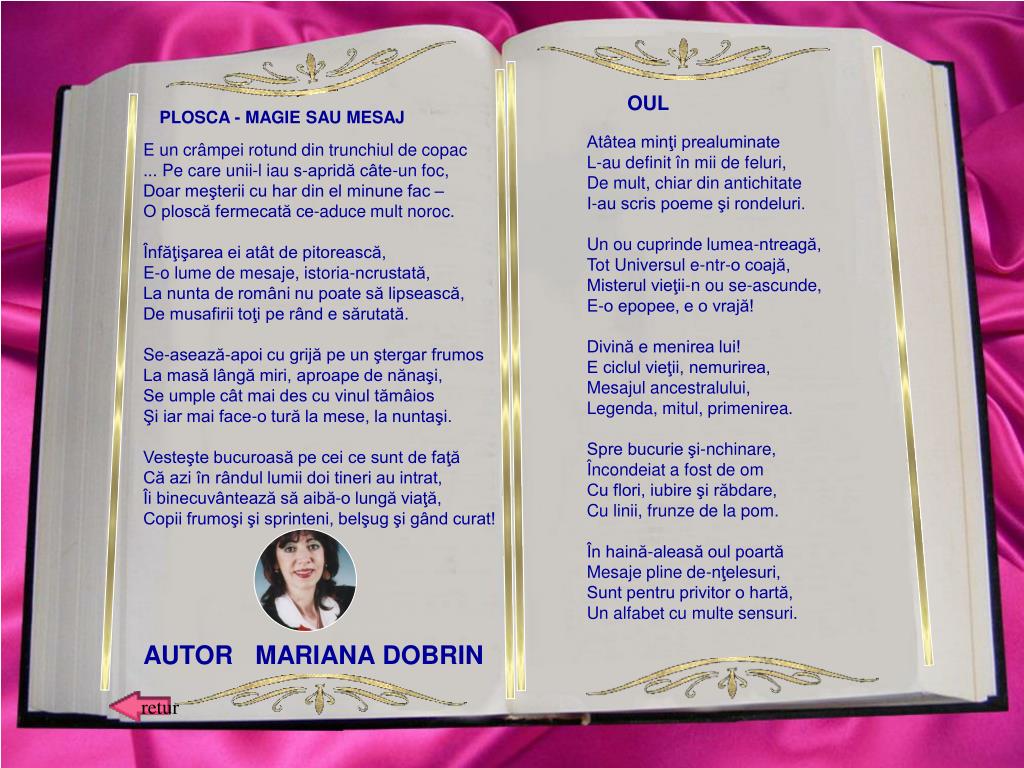 PLOSCA - MAGIE SAU MESAJ
E un crâmpei rotund din trunchiul de copac
... Pe care unii-l iau s-apridă câte-un foc,
Doar meşterii cu har din el minune fac –
O ploscă fermecată ce-aduce mult noroc.
Înfăţişarea ei atât de pitorească,
E-o lume de mesaje, istoria-ncrustată,
La nunta de români nu poate să lipsească,
De musafirii toţi pe rând e sărutată.
Se-asează-apoi cu grijă pe un ştergar frumos
La masă lângă miri, aproape de nănaşi,
Se umple cât mai des cu vinul tămâios
Şi iar mai face-o tură la mese, la nuntaşi.
Vesteşte bucuroasă pe cei ce sunt de faţă
Că azi în rândul lumii doi tineri au intrat,
Îi binecuvântează să aibă-o lungă viaţă,
Copii frumoşi şi sprinteni, belşug şi gând curat!
AUTOR MARIANA DOBRIN
retur
OUL
Atâtea minţi prealuminate
L-au definit în mii de feluri,
De mult, chiar din antichitate
I-au scris poeme şi rondeluri.
Un ou cuprinde lumea-ntreagă,
Tot Universul e-ntr-o coajă,
Misterul vieţii-n ou se-ascunde,
E-o epopee, e o vrajă!
Divină e menirea lui!
E ciclul vieţii, nemurirea,
Mesajul ancestralului,
Legenda, mitul, primenirea.
Spre bucurie şi-nchinare,
Încondeiat a fost de om
Cu flori, iubire şi răbdare,
Cu linii, frunze de la pom.
În haină-aleasă oul poartă
Mesaje pline de-nţelesuri,
Sunt pentru privitor o hartă,
Un alfabet cu multe sensuri.